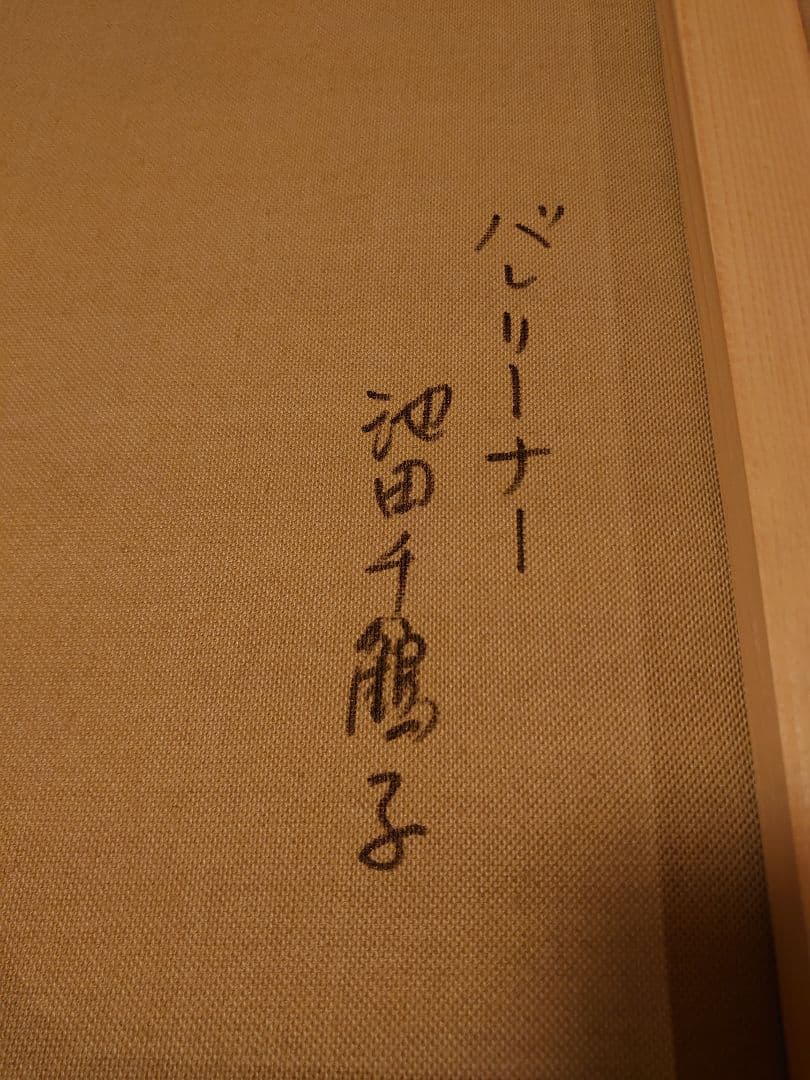 バレリーナー
池田千鶴子